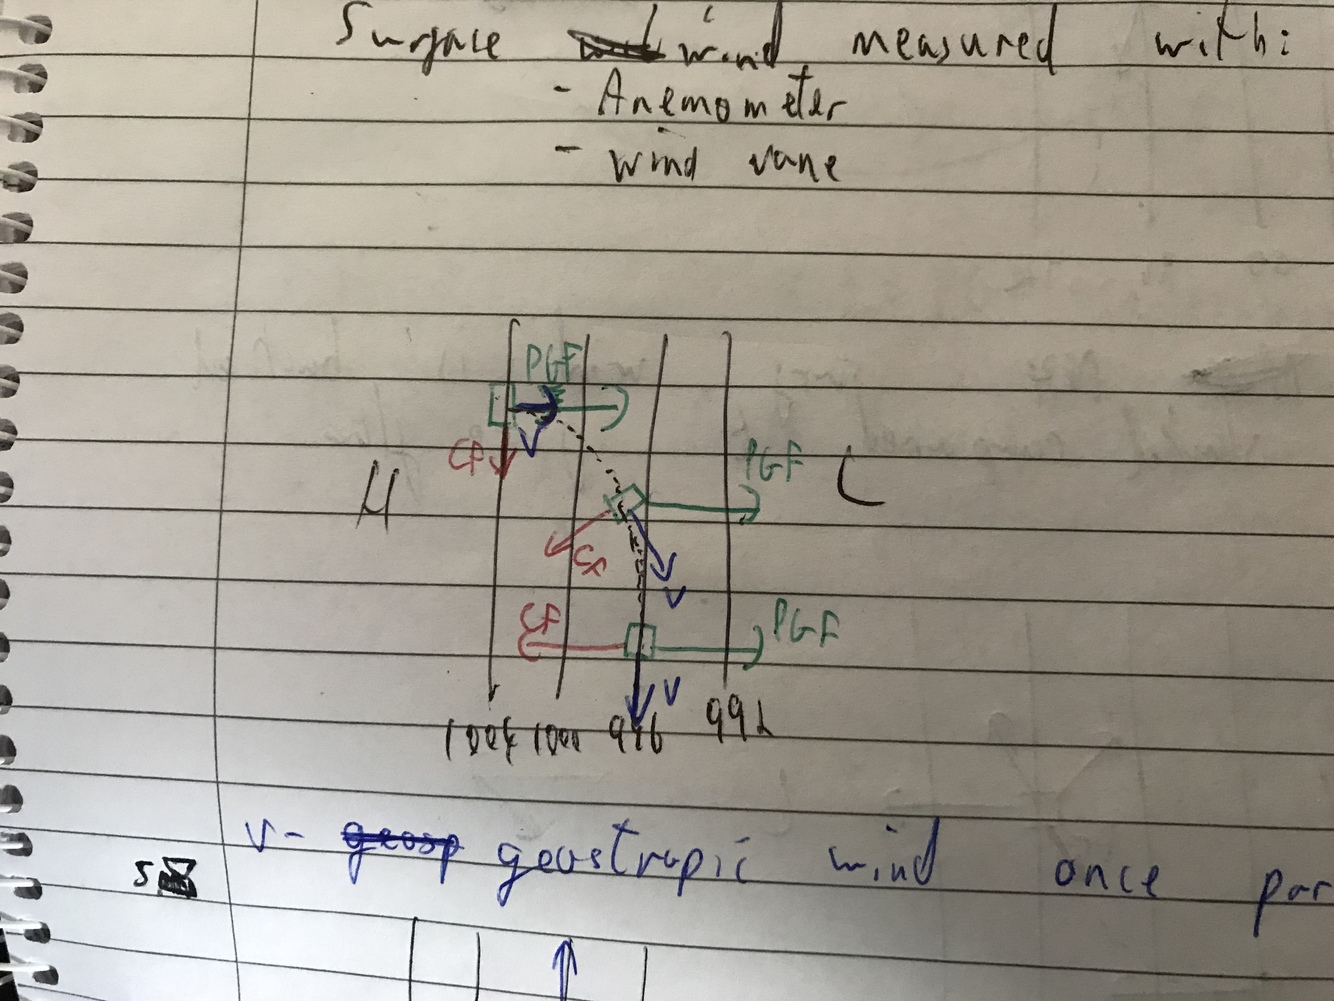 Surface wind measured with:
- Anemometer
- wind vane
PGF
V
CF
H
PGF
L
CF
V
CF
PGF
V
1004 1000 996 992
V - geostropic wind once par